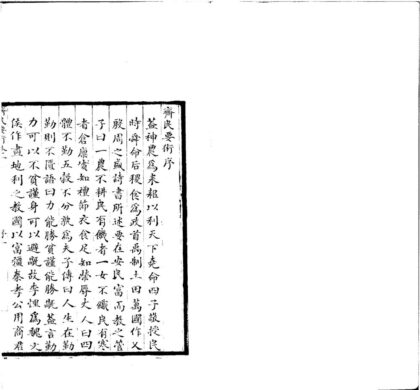 齊民要術序
蓋神農爲耒耜以利天下堯命四子敬授民
時舜命后稷食爲政首禹制土田萬國作乂
殷周之盛詩書所述要在安民富而教之管
子曰一農不耕民有飢者一女不織民有寒
者倉廩實知禮節衣食足知榮辱丈人曰四
體不勤五穀不分孰爲夫子傳曰人生在勤
勤則不匱語曰力能勝貧謹能勝旤蓋言勤
力可以不貧謹身可以避旤故李悝爲魏文
侯作盡地利之教國以富彊秦孝公用商君